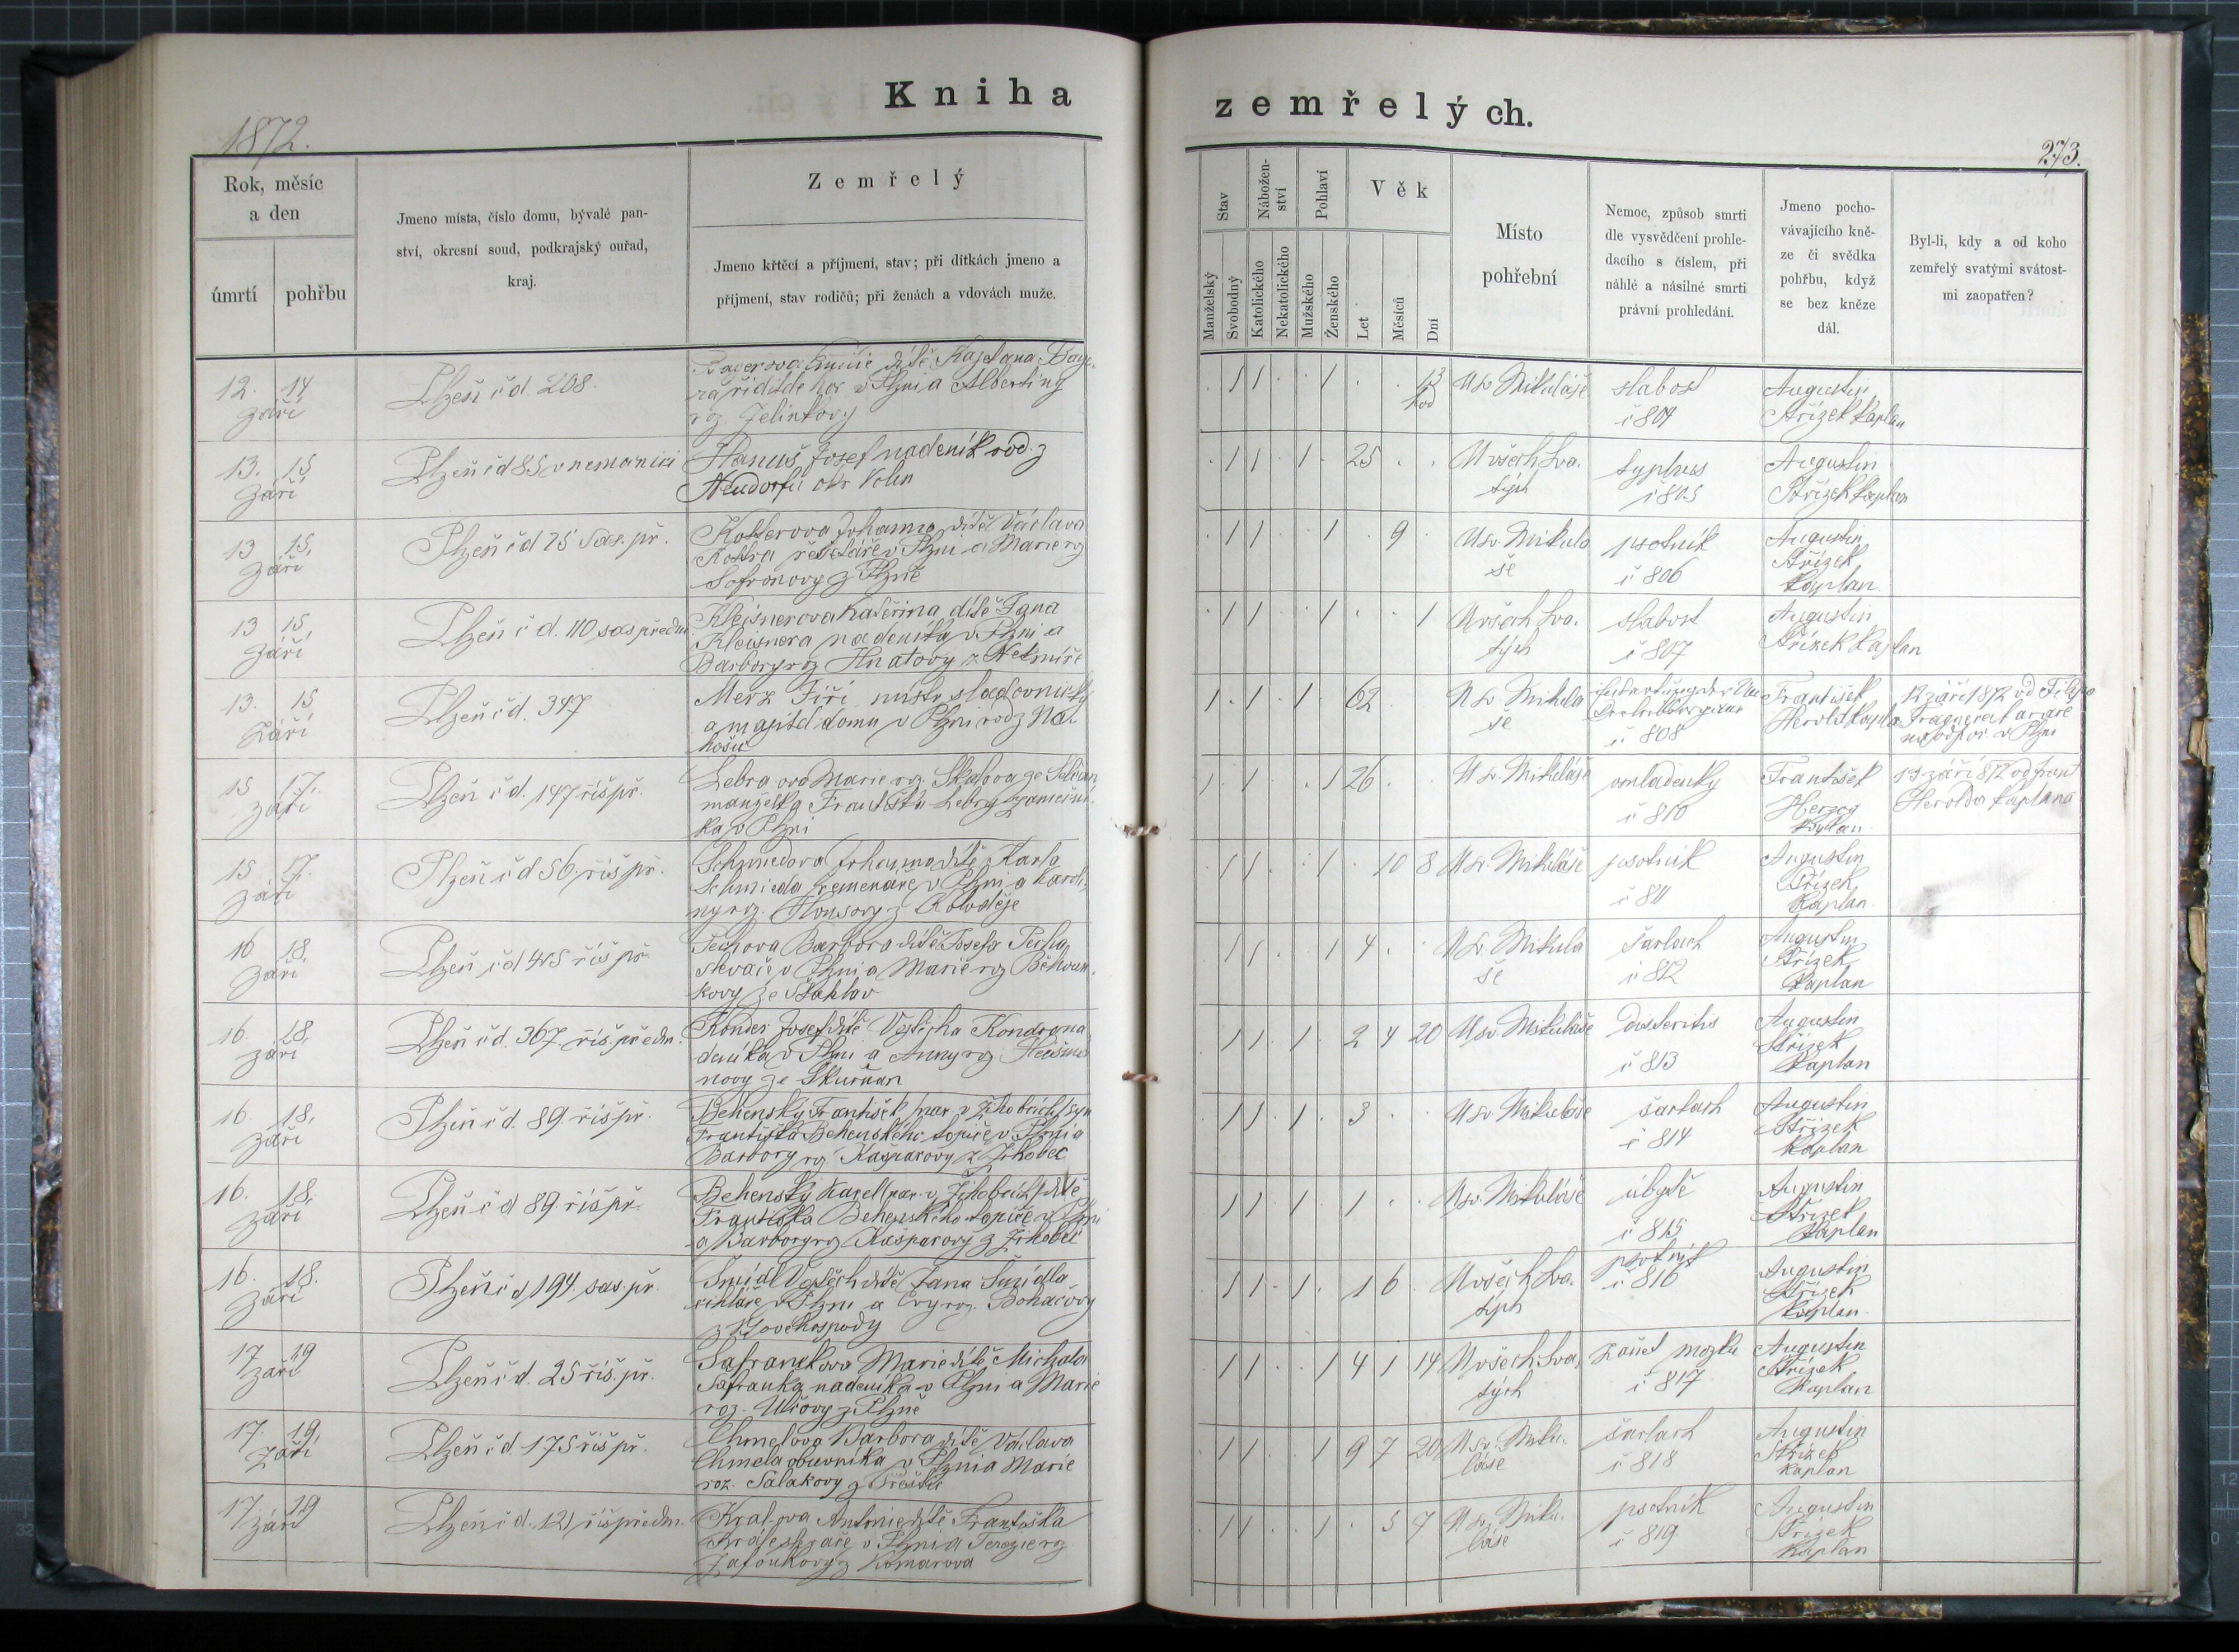 Kniha
zemřelých.
1872.
273.
Rok, měsíc
a den
úmrtí
pohřbu
Jmeno místa, číslo domu, bývalé pan-
ství, okresní soud, podkrajský ouřad,
kraj.
Zemřelý
Jmeno křtěcí a příjmení, stav; při dítkách jmeno a
příjmení, stav rodičů; při ženách a vdovách muže.
Stav
Manželský
Svobodný
Nábožen-
ství
Katolického
Nekatolického
Pohlaví
Mužského
Ženského
Věk
Let
Měsíců
Dní
Místo
pohřební
Nemoc, způsob smrti
dle vysvědčení prohle-
dacího s číslem, při
náhlé a násilné smrti
právní prohledání.
Jmeno pocho-
vávajícího kně-
ze či svědka
pohřbu, když
se bez kněze
dál.
Byl-li, kdy a od koho
zemřelý svatými svátost-
mi zaopatřen?
12. 14
září
Plzeň čd 208.
dítě Kajetana
v Plzni a Albertiny
roz. Jelinkovy
1 1 1 13
hod
U sv. Mikuláše
slabost
č 804
Augustin
Střízek kaplan
13. 15
září
Plzeň čd 85 v nemocnici
Hanuš Josef nadeník rod. z
Neudorfu okr Kolín
1 1 1 25
U všech sva-
tých
typhus
č 805
Augustin
Střízek kaplan
13 15.
září
Plzeň čd 75 sas. př.
Kotterova Johanna dítě Václava
v Plzni a Marie roz
Safronovy z Plzně
1 1 1 9
U sv. Mikula
še
psotník
č 806
Augustin
Střízek
kaplan
13 15
září
Plzeň č d. 110 sas předm.
Kleisnerova Kateřina dítě Jana
Kleisnera nadeníka v Plzni a
Barbory roz Hnatovy z Nekmíře
1 1 1 1
U všech sva-
tých
slabost
č 807
Augustin
Střízek kaplan
13. 15
Září
Plzeň čd. 347
Merz Jiří mistr sladovnický
a majitel domu v Plzni rodz
1 1 1 62
U sv. Mikula
še
č 808
František
Herold kaplan
12 září 1872 od
v Plzni
15 17.
září
Plzeň č d. 147 říš př.
Lebrova Marie roz. Skalova ze
manželka Františka Lebry zámečni-
ka v Plzni
1 1 1 26
U sv. Mikuláše
omladenky
č 810
František
Herzog
kaplan
13 září 872 od Frant
Herolda kaplana
15 17.
září
Plzeň č d 56 říš př.
Schmiedova Johanna dítě Karla
Schmieda řemenáře v Plzni a Karoli-
ny roz. z Koloděje
1 1 1 10 8
U sv. Mikuláše
psotník
č 811
Augustin
Střízek
kaplan
16 18.
září
Plzeň čd 405 říš př.
Barbora dítě Josefa
slevače v Plzni a Marie roz
kovy ze Šťahlav
1 1 1 4
U sv. Mikula
še
šarlach
č 812
Augustin
Střízek
kaplan
16. 18.
září
Plzeň čd. 367 říš. předm.
Josef dítě Vojtěcha
deníka v Plzni a Anny roz
novy ze Skurňan
1 1 1 2 4 20
U sv Mikuláše
č 813
Augustin
Střízek
kaplan
16. 18.
září
Plzeň č d. 89 říš př.
Behenský František syn
Františka Behenského topiče v Plzni a
Barbory roz Kašparovy z
1 1 1 3
U sv Mikuláše
šarlach
č 814
Augustin
Střízek
kaplan
16. 18.
září
Plzeň č d 89 říš př.
Behenský Karel dítě
Františka Behenského topiče v Plzni
a Barbory roz Kašparovy z
1 1 1 1
U sv. Mikuláše
úbytě
č 815
Augustin
Střízek
kaplan
16. 18.
září
Plzeň č d 194 sas. př.
Šmídl Vojtěch dítě Jana Šmídla
v Plzni a Evy roz.
1 1 1 1 6
U všech sva-
tých
psotník
č 816
Augustin
Střízek
kaplan
17 19
září
Plzeň č d. 25 říš. př.
Safrankova Marie dítě Michala
Safranka nadeníka v Plzni a Marie
roz. z Plzně
1 1 1 4 1 14
U všech sva-
tých
zánět mozku
č 817
Augustin
Střízek
kaplan
17. 19.
září
Plzeň č d. 175 říš př.
Chmelova Barbora dítě Václava
Chmela obuvníka v Plzni a Marie
roz. Salakovy z Přeštic
1 1 1 9 7 20
U sv. Miku-
láše
šarlach
č 818
Augustin
Střízek
kaplan
17. 19
září
Plzeň č d. 121 říš předm.
Kralova Antonie dítě Františka
v Plzni a Terezie roz
z Komarova
1 1 1 5 7
U sv. Miku-
láše
psotník
č 819
Augustin
Střízek
kaplan